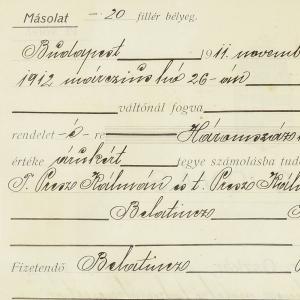 Másolat – 20 fillér bélyeg.
Budapest 1911. novemb
1912 márczius hó 26-án
váltónál fogva
rendelet -é- re Háromszáz
értéke árukért tegye számolásba tud
T. Presz Kálmán és t. Presz Kál
Belatincz
Fizetendő Belatincz